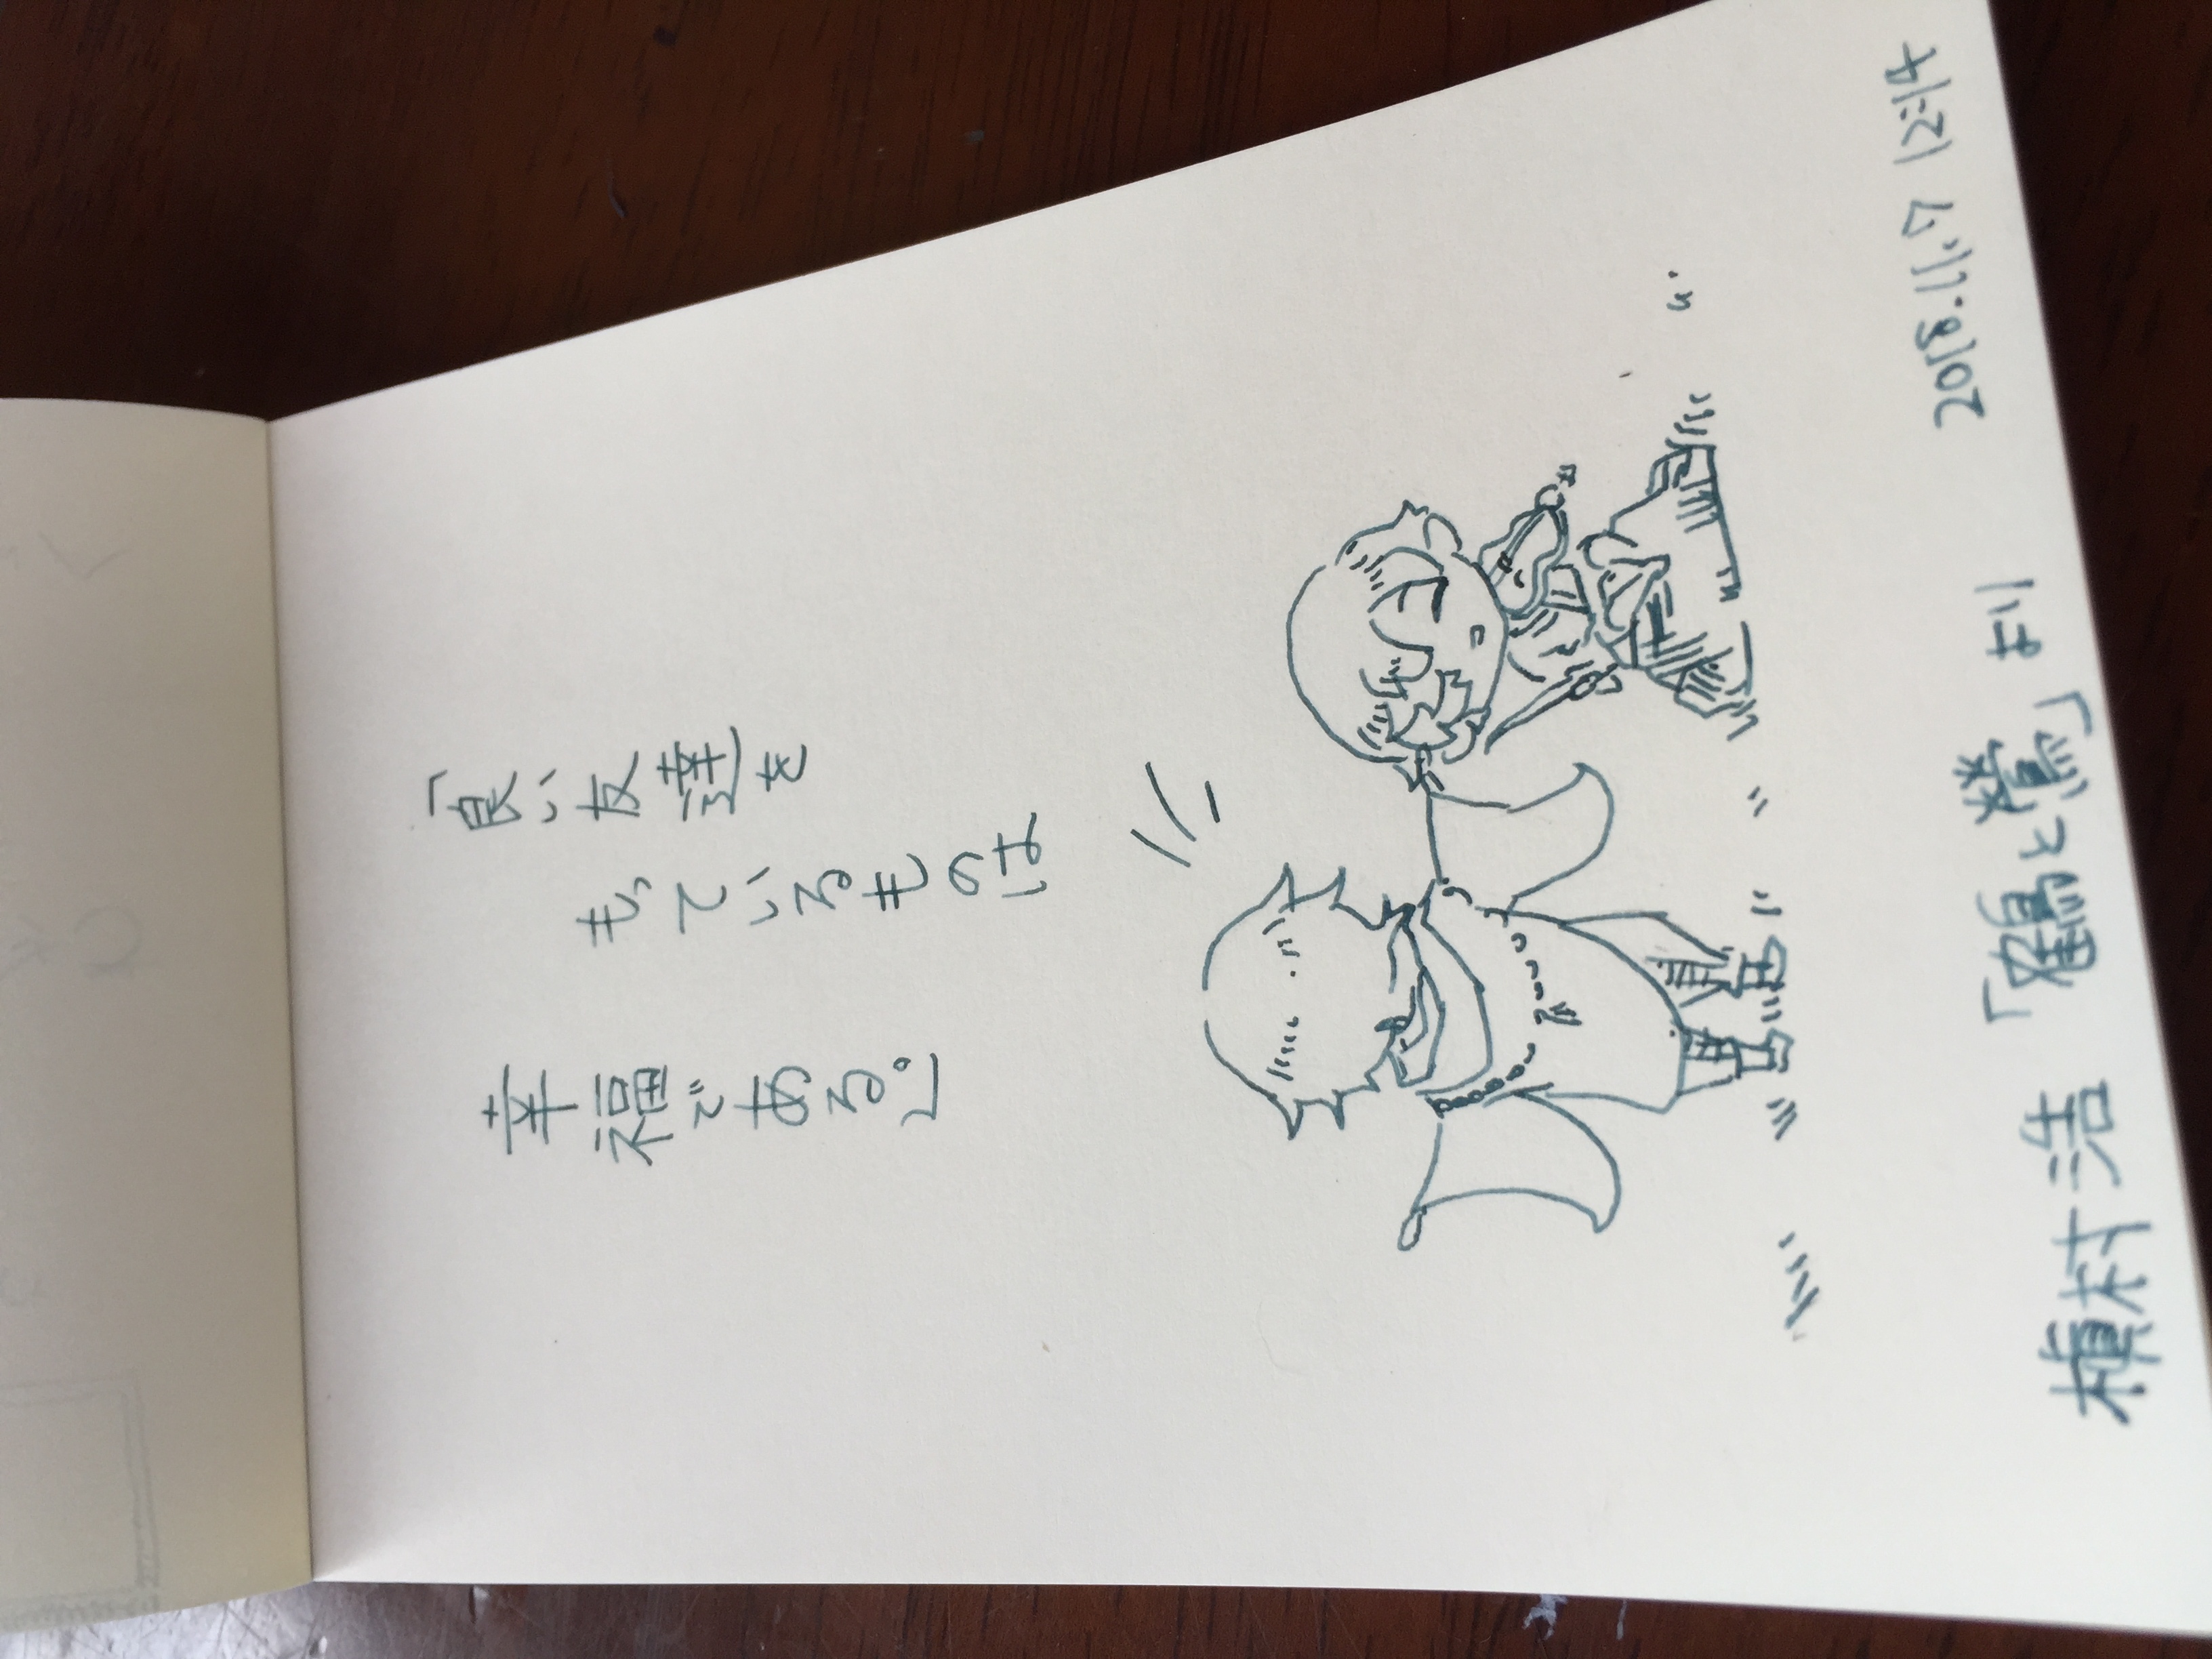 「良い友達を
もっているものは
幸福である。」
槙村浩「鶴と鶯」より
2018.11.7 12:14